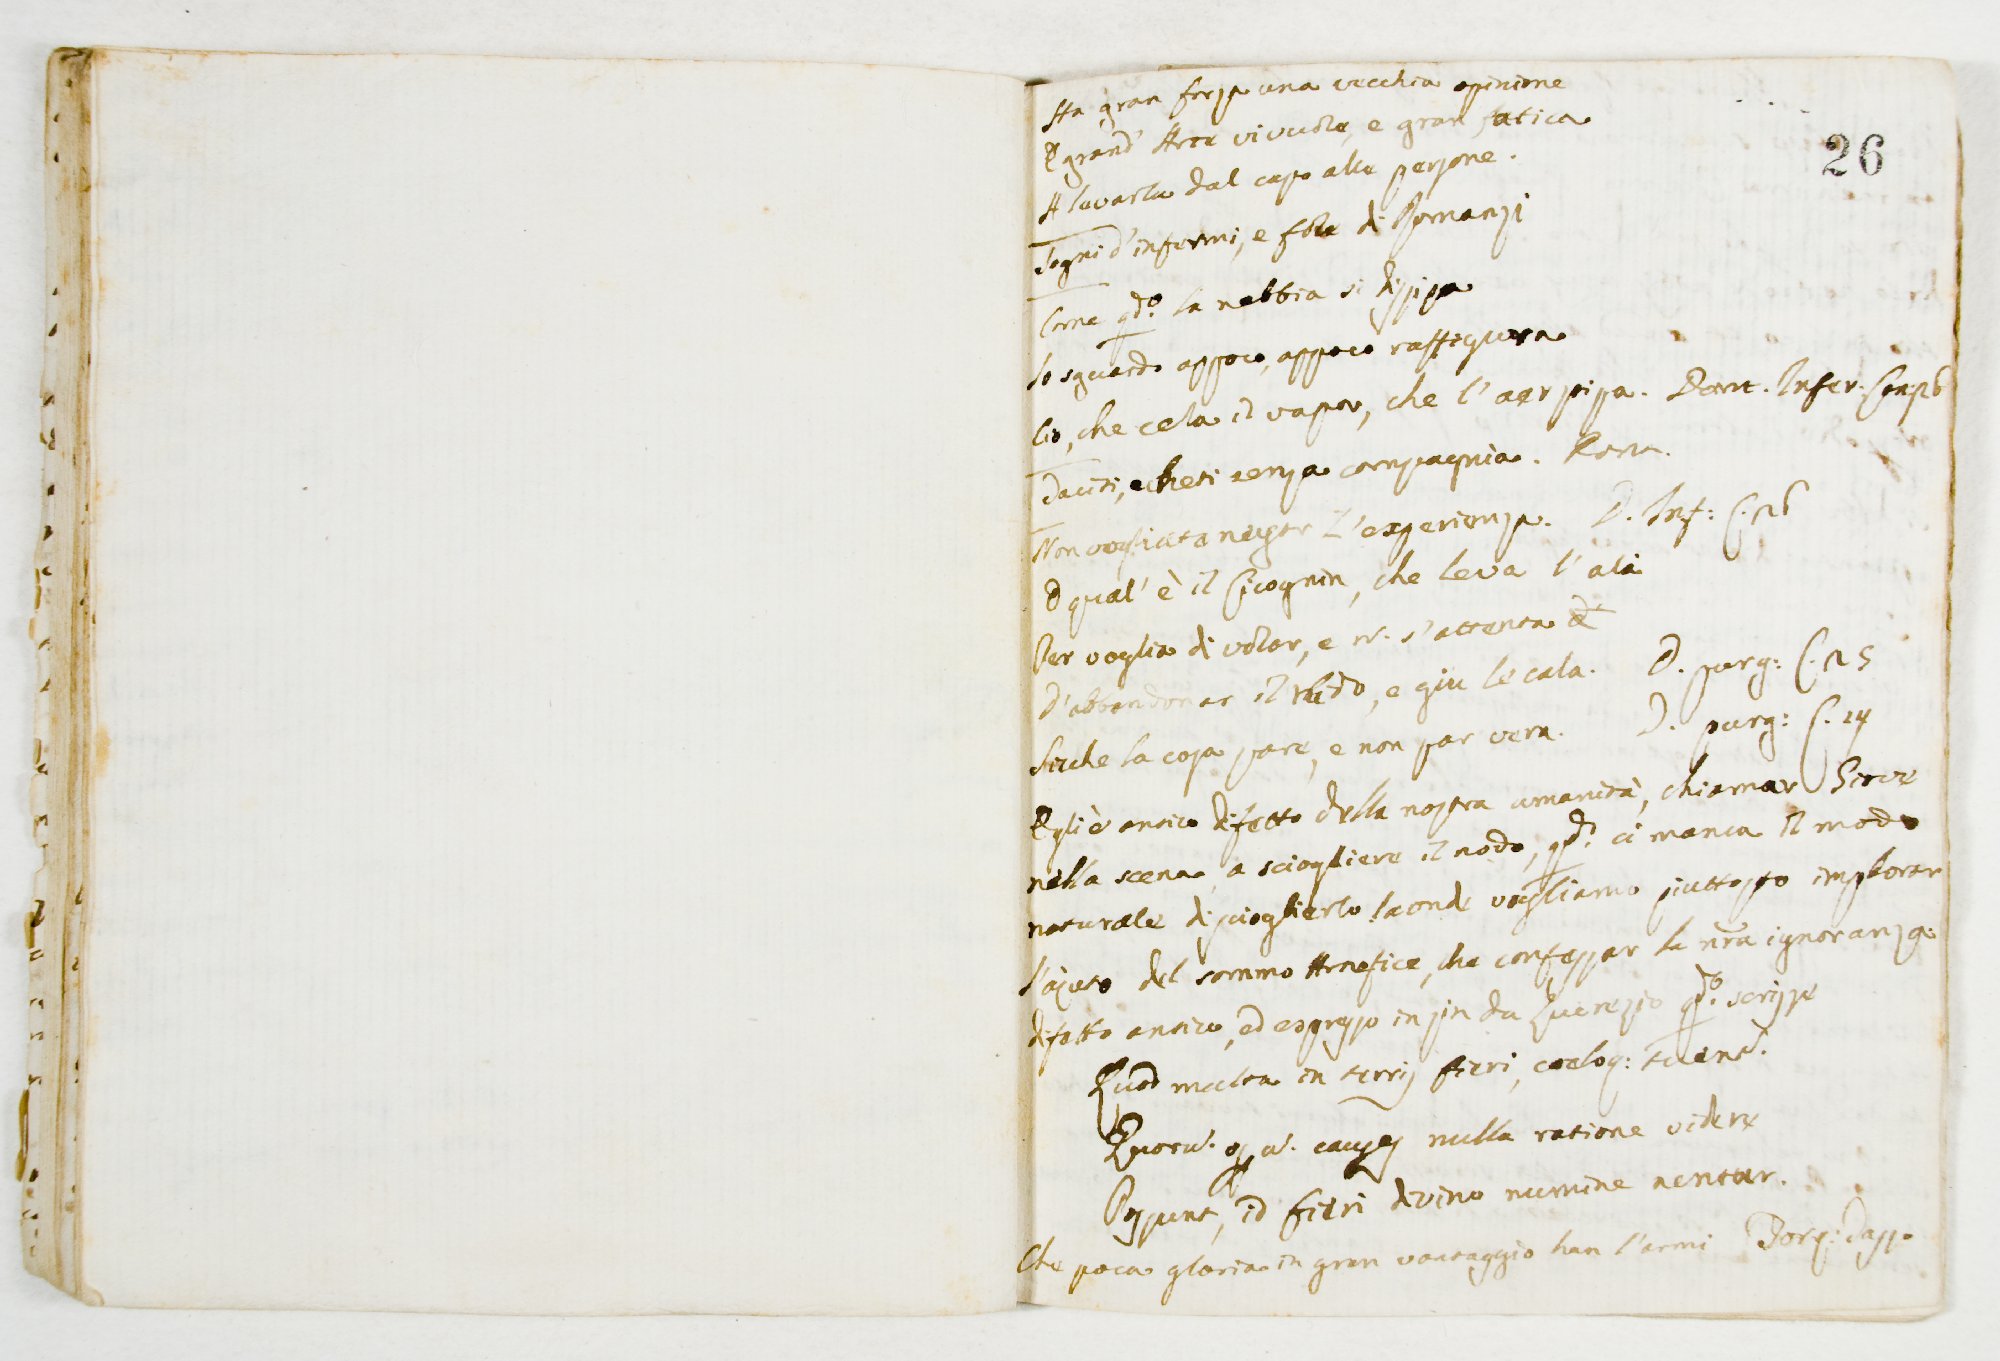 26
Ha gran forza una vecchia opinione
E grand' Arte vi vuole, e gran fatica
A levarla dal capo alle persone.
Sogni d'infermi, e fole di Romanzi
Come qdo. la nebbia si dissipa
Lo sguardo appoco, appoco raffigura
Ciò, che cela il vapor, che l'aer stipa. Dant. Infer.
Taciti, e cheti senza compagnia.
Non vogliate negar l'esperienza. D. Inf: C. 26
E qual' è il Cicognin, che leva l'ala
Per voglia di volar, e n. s'attenta
D'abbandonar il nido, e giu le cala. D. purg: C. 25
Sicche la cosa pare, e non par vera. D. purg: C. 24
Egli è antico difetto della nostra umanità, chiamar Giove
nella scena, a sciogliere il nodo, qdo. ci manca il modo
naturale di scioglierlo laonde vogliamo piuttosto implorar
l'ajuto del sommo Artefice, che confessar la nra ignoranza.
difetto antico, ed espresso insin da Luerezio qdo. scrisse
Quod multa in terris fieri, coeloq: tuent.
Quoru. operu. causas nulla ratione videre
Possunt, id fieri divino numine rentur.
Che poca gloria in gran vantaggio han l'armi